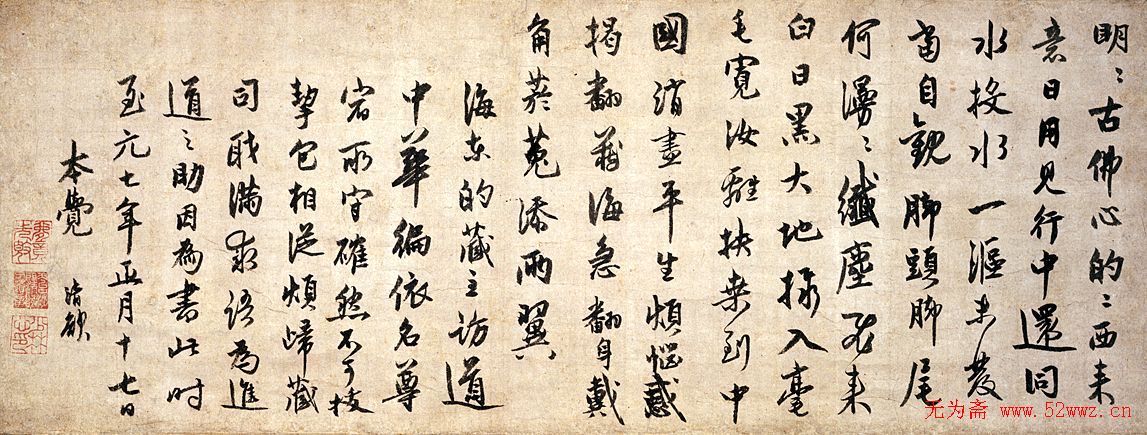 明〻古佛心的〻西来
意日用见行中還同
水投水一漚未發
當自觀脚頭脚尾
何漫〻纖塵飛来
白日黑大地採入毫
毛寬汝離扶桒到中
國消盡平生煩惱惑
揭翻藏海急翻身戴
角菸菟添兩翼
海东的藏主访道
中華徧依名尊
宿所守確然不可拔
挈包相従煩歸藏
司職満求语為進
道之助因為書此时
至元七年正月十七日
本覺 清欲
无为斋 www.52wwz.cn